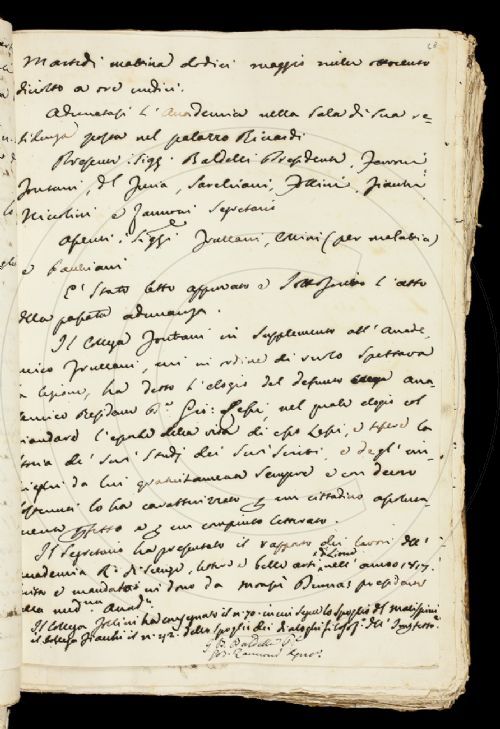 Martedì mattina dodici maggio mille ottocento
diciotto a ore undici.
Adunatasi l'Accademia nella Sala di Sua re-
sidenza posta nel palazzo Ricardi
Presenti i Sigg. Baldelli Presidente, Zannoni
Fontani, Del Furia, Sarchiani, Follini, Fiacchi
Niccolini e Zannoni Segretario
Assenti i Siggi Frullani, (per malattia)
e
È stato letto approvato e sottoscritto l'atto
della passata adunanza.
Il Collega Fontani in supplemento all'Accade-
mico Frullani, cui in ordine di ruolo spettava
la lezione, ha detto l'elogio del defunto Acca-
demico Residente Gio: Lessi, nel quale elogio col
l'epoche della vita di esso Lessi, e tessere la
storia de' suoi Studj dei suoi Scritti, e degl'im-
pieghi da lui gratuitamente sempre e con decoro
sostenuti lo ha caratterizzato p un cittadino assoluta-
mente e p un compiuto letterato.
Il Segretario ha presentato il rapporto dei lavori dell'
Accademia Rle di Scienze, lettere e belle arti di Lione nell'anno 1817.
e mandato in dono da Dumas
della med.ma Accad.
Il Collega Follini ha consegnato il no 70. in cui segue lo spoglio del Malispini
il Collega Fiacchi il no dello spoglio dei Dialoghi
G. B. Baldelli P.
G. B. Zannoni Segro.